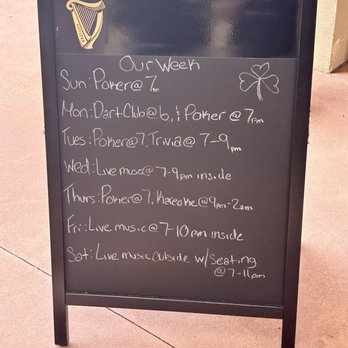 Our Week
Sun: Poker @ 7pm
Mon: Dart Club @ 6, & Poker @ 7pm
Tues: Poker @ 7, Trivia @ 7-9pm
Wed: Live music @ 7-9pm inside
Thurs: Poker @ 7, Kareoke @ 9pm-2am
Fri: Live music @ 7-10pm inside
Sat: Live music outside w/ Seating
@ 7-11pm